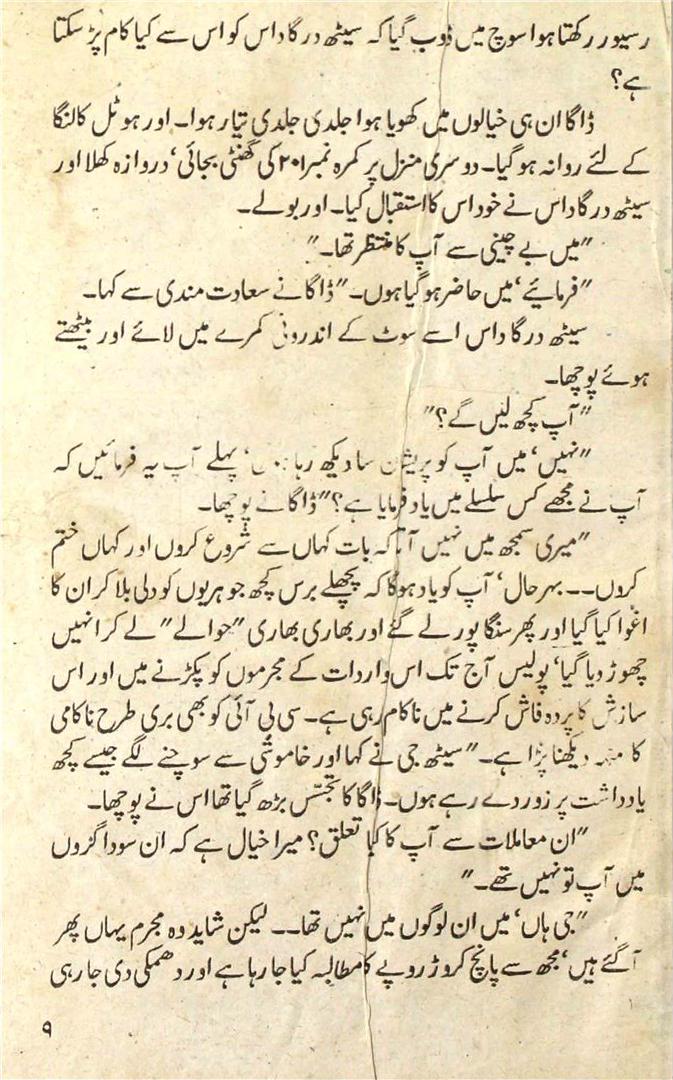 رسیور رکھتا ہوا سوچ میں ڈوب گیا کہ سیٹھ درگا داس کو اس سے کیا کام پڑ سکتا
ہے؟
ڈاگا ان ہی خیالوں میں کھویا ہوا جلدی جلدی تیار ہوا۔ اور ہوٹل کالنگا
کے لئے روانہ ہو گیا۔ دوسری منزل پر کمرہ نمبر ۲۰۱ کی گھنٹی بجائی‘ دروازہ کھلا اور
سیٹھ درگا داس نے خود اس کا استقبال کیا۔ اور بولے۔
”میں بے چینی سے آپ کا منتظر تھا۔“
”فرمایئے‘ میں حاضر ہو گیا ہوں۔“ ڈاگا نے سعادت مندی سے کہا۔
سیٹھ درگا داس اسے سوٹ کے اندرونی کمرے میں لائے اور بیٹھتے
ہوئے پوچھا۔
”آپ کچھ لیں گے؟“
”نہیں‘ میں آپ کو پریشان سا دیکھ رہا ہوں‘ پہلے آپ یہ فرمائیں کہ
آپ نے مجھے کس سلسلے میں یاد فرمایا ہے؟“ ڈاگا نے پوچھا۔
”میری سمجھ میں نہیں آتا کہ بات کہاں سے شروع کروں اور کہاں ختم
کروں۔۔ بہرحال‘ آپ کو یاد ہوگا کہ پچھلے برس کچھ جوہریوں کو دلی بلا کر ان کا
اغوا کیا گیا اور پھر سنگاپور لے گئے اور بھاری بھاری ”حوالے“ لے کر انہیں
چھوڑ دیا گیا‘ پولیس آج تک اس واردات کے مجرموں کو پکڑنے میں اور اس
سازش کا پردہ فاش کرنے میں ناکام رہی ہے۔ سی بی آئی کو بھی بری طرح ناکامی
کا منہ دیکھنا پڑا ہے۔“ سیٹھ جی نے کہا اور خاموشی سے سوچنے لگے جیسے کچھ
یادداشت پر زور دے رہے ہوں۔ ڈاگا کا تجسّس بڑھ گیا تھا اس نے پوچھا۔
”ان معاملات سے آپ کا کیا تعلق؟ میرا خیال ہے کہ ان سوداگروں
میں آپ تو نہیں تھے۔“
”جی ہاں‘ میں ان لوگوں میں نہیں تھا۔۔ لیکن شاید وہ مجرم یہاں پھر
آ گئے ہیں‘ مجھ سے پانچ کروڑ روپے کا مطالبہ کیا جا رہا ہے اور دھمکی دی جا رہی
۹